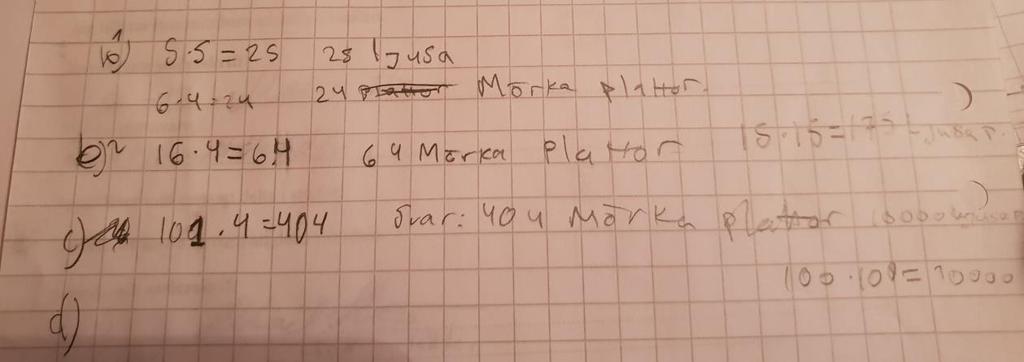 1a) 5·5=25 25 ljusa
6·4=24 24 Mörka plattor.
b) 16·4=64 64 Mörka plattor 15·15=175 Ljusa
c) 101·4=404 Svar: 404 Mörka plattor 10000
100·100=10000
d)